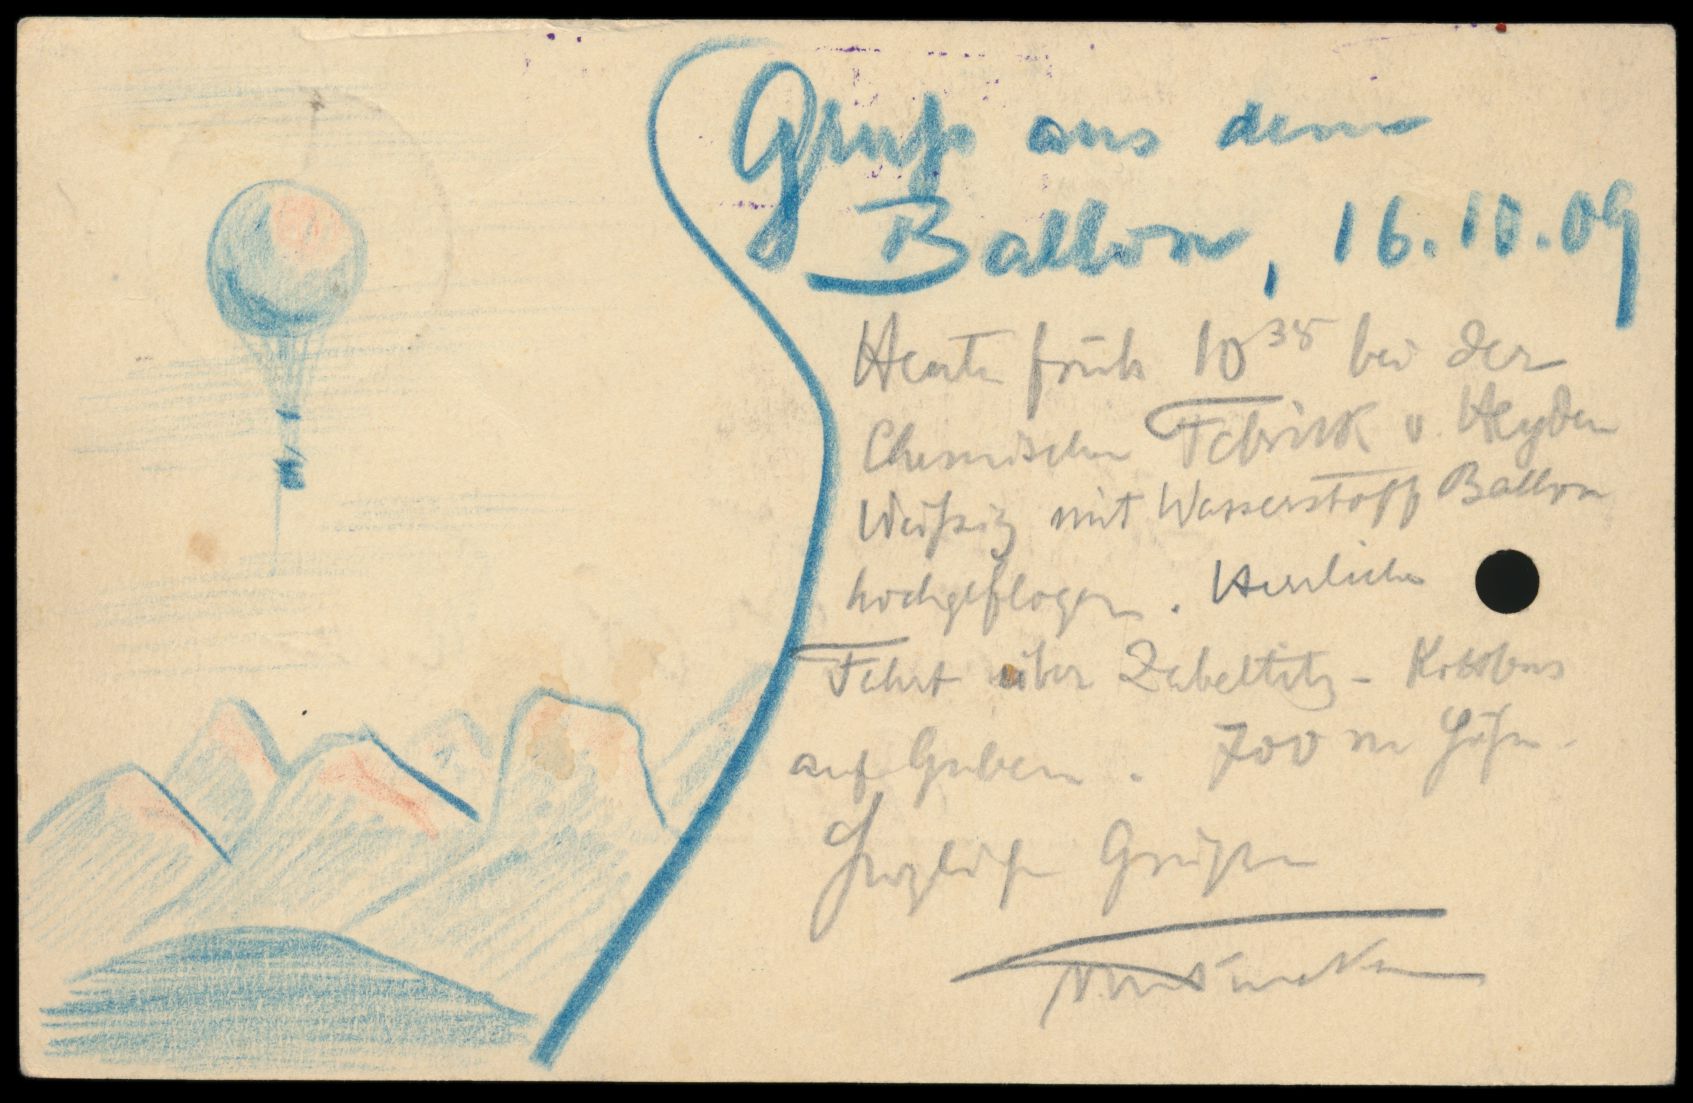 Gruß aus dem
Ballon, 16.10.09
Heute früh 10 35 bei der
Chemischen Fabrik v. Heyden
Weißig mit Wasserstoff Ballon
hochgeflogen. Herrliche
Fahrt über Zabeltitz - Kottbus
auf Guben. 700 m Höhe.
Herzliche Grüße